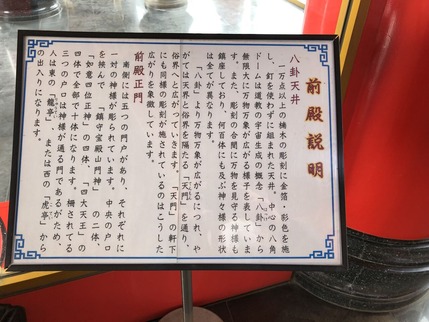 前殿説明
八卦天井
一万点以上の楠木の彫刻に金箔・彩色を施
し、釘を使わずに組まれた天井。中心の八角
ドームは道教の宇宙生成の概念「八卦」から
無限大に万物万象が広がる様子を表していま
す。また、彫刻の合間に万物を見守る神様も
鎮座しており、何百体にも及ぶ神々様の形状
は全てが異なります。
「八卦」より万物万象が広がるにつれ、や
がては天界と俗界を隔たる「天門」を通り、
俗界へと広がっていきます。「天門」の軒下
にも同様の彫刻が施されているのはこうした
広がりを象徴しています。
前殿正門
南側には五つの門戸があり、それぞれに
一対の神様が彫られています。中央の戸口
を挟んで、「鎮守宝殿山門神」の二体、
「如意四位正神」の四体、「四大天王」の
四体で全部で十体になります。柵されてる
三つの戸口は神様が通る門であるがため、
人は東の「龍亭」、または西の「虎亭」から
の出入りになります。